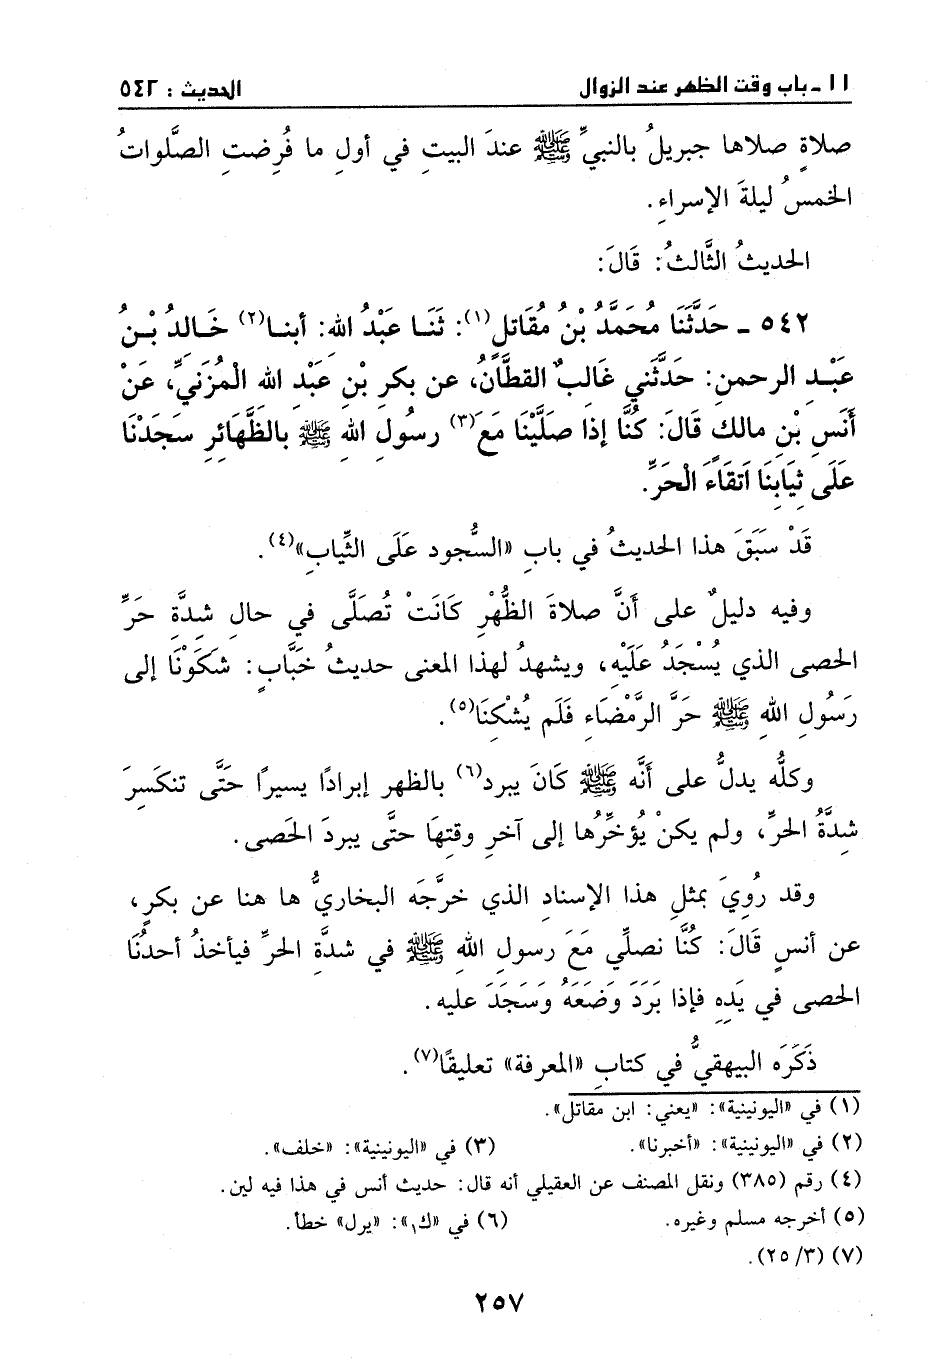 ١١ - باب وقت الظهر عند الزوال الحديث : ٥٤٢
صلاةٍ صلاها جبريلُ بالنبيِّ ﷺ عندَ البيتِ في أولِ ما فُرِضتِ الصَّلواتُ
الخمسُ ليلةَ الإسراءِ.
الحديثُ الثَّالثُ: قَالَ:
٥٤٢ - حَدَّثَنَا مُحَمَّدُ بْنُ مُقَاتل(١): ثَنَا عَبْدُ الله: أبنا(٢) خَالدُ بْنُ
عَبْدِ الرحمنِ: حَدَّثَني غَالبٌ القطَّانُ، عن بكرِ بْنِ عَبْدِ اللهِ الْمُزَنيِّ، عَنْ
أنَسِ بْنِ مالك قَالَ: كُنَّا إذَا صَلَّيْنَا مَعَ(٣) رسُولِ اللهِ ﷺ بالظَّهَائرِ سَجَدْنَا
عَلَى ثيَابِنَا اَتقَاءَ الْحَرِّ.
قَدْ سَبَقَ هذا الحديثُ في بابِ «السُّجود عَلَى الثِّيابِ»(٤).
وفيه دليلٌ على أنَّ صلاةَ الظُّهْرِ كَانَتْ تُصَلَّى في حالِ شدَّةِ حَرِّ
الحصى الذي يُسْجَدُ عَلَيْهِ، ويشهدُ لهذا المعنى حديثُ خَبَّابٍ: شَكَوْنَا إلى
رَسُولِ اللهِ ﷺ حَرَّ الرَّمْضَاءِ فَلَم يُشْكِنَا(٥).
وكلُّه يدلُّ على أنَّه ﷺ كَانَ يبرد(٦) بالظهر إبرادًا يسيرًا حَتَّى تنكَسِرَ
شدَّةُ الحرِّ، ولم يكنْ يُؤخِّرُها إلى آخرِ وقتِهَا حتَّى يبردَ الحَصى.
وقد رُويَ بمثلِ هذا الإسنادِ الذي خرَّجَه البخاريُّ ها هنا عن بكرٍ،
عن أنسٍ قَالَ: كُنَّا نصلِّي مَعَ رسولِ اللهِ ﷺ في شدَّةِ الحرِّ فيأخذُ أحدُنَا
الحصى في يَدِهِ فإذا بَرَدَ وَضَعَهُ وَسَجَدَ عليه.
ذَكَرَه البيهقيُّ في كتابِ «المعرفة» تعليقًا(٧).
(١) في «اليونينية»: «يعني: ابن مقاتل».
(٢) في «اليونينية»: «أخبرنا». (٣) في «اليونينية»: «خلف».
(٤) رقم (٣٨٥) ونقل المصنف عن العقيلي أنه قال: حديث أنس في هذا فيه لين.
(٥) أخرجه مسلم وغيره. (٦) في «ك١»: «يرل» خطأ.
(٧) (٢٥/٣).
٢٥٧